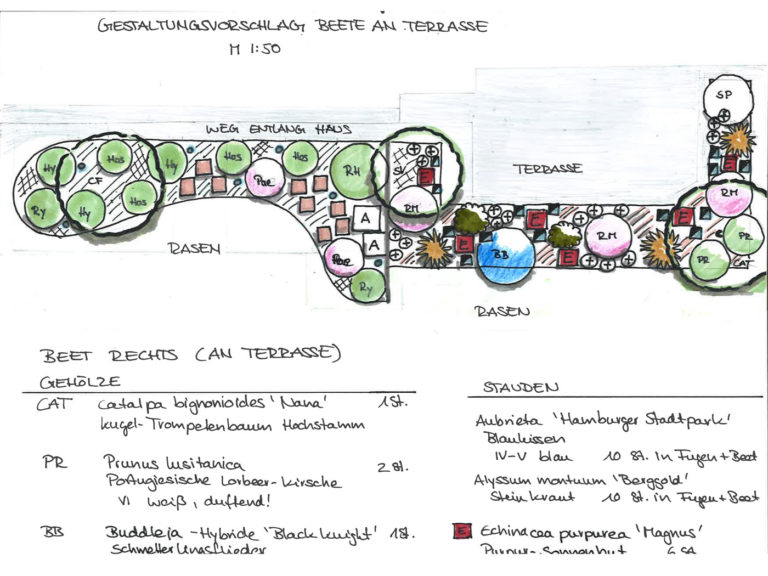 GESTALTUNGSVORSCHLAG BEETE AN TERRASSE
M 1:50
SP
WEG ENTLANG HAUS
TERRASSE
Hy
CF
Hos
Hy
Hos
Hos
RH
SV
E
E
RM
Ry
Hy
Hos
Pae
A
A
RM
E
E
RM
E
PR
RASEN
Pae
BB
E
PR
CAT
Ry
RASEN
BEET RECHTS (AN TERRASSE)
GEHÖLZE
CAT Catalpa bignonioides 'Nana' 1 St.
Kugel-Trompetenbaum Hochstamm
PR Prunus lusitanica 2 St.
Portugiesische Lorbeer-Kirsche
VI weiß, duftend!
BB Buddleja-Hybride 'Black Knight' 1 St.
Schmetterlingsflieder
STAUDEN
Aubrieta 'Hamburger Stadtpark'
Blaukissen
IV-V blau 10 St. in Fugen+Beet
Alyssum montuum 'Berggold'
Steinkraut 10 St. in Fugen+Beet
E Echinacea purpurea 'Magnus'
Purpur-Sonnenhut 6 St.